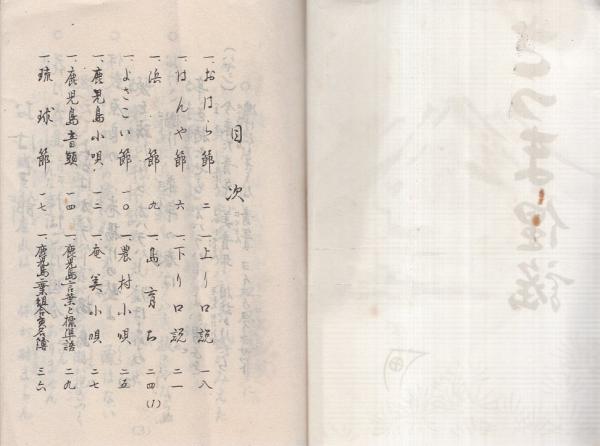 目次
一、おはら節 二
一、はんや節 六
一、浜節 九
一、よさこい節 一〇
一、鹿児島小唄 一二
一、鹿児島音頭 一四
一、琉球節 一七
一、上り口説 一八
一、下り口説 二一
一、島育ち 二四
一、農村小唄 二五
一、奄美小唄 二七
一、鹿児島言葉と標準語 二九
一、鹿児島 三六
(1)
さつま俚謡